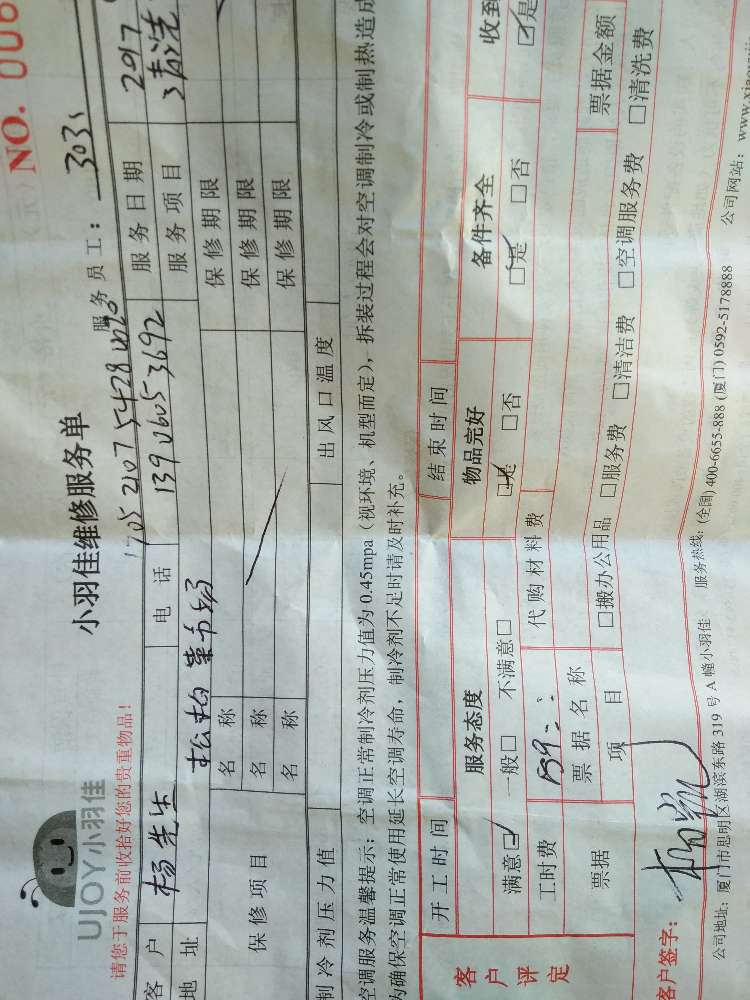 UJOY小羽佳
小羽佳维修服务单
NO. 006
请您于服务前收拾好您的贵重物品!
服务员工:3035
客户 杨先生 电话 139 0605 3692 服务日期 2017
地址 松柏菜市场 服务项目 清洗
保修项目 名称 保修期限
名称 保修期限
名称 保修期限
制冷剂压力值 出风口温度
空调服务温馨提示:空调正常制冷剂压力值为 0.45mpa(视环境、机型而定),拆装过程会对空调制冷或制热造成
为确保空调正常使用延长空调寿命,制冷剂不足时请及时补充。
开工时间 结束时间
客户评定 服务态度 物品完好 备件齐全 收到
满意☑ 一般□ 不满意□ ☑是 □否 ☑是 □否 ☑是
工时费 代购材料费
票据 票据名称 票据金额
项目 □搬办公用品 □服务费 □清洁费 □空调服务费 □清洗费
客户签字:
公司地址:厦门市思明区湖滨东路 319 号 A 幢小羽佳 服务热线:(全国) 400-6655-888 (厦门) 0592-5178888 公司网站:www.xiao